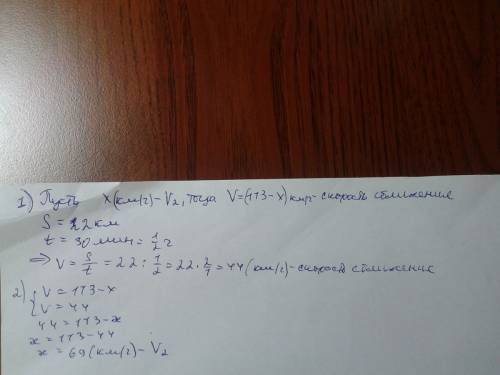 1) Пусть x(км/ч) - V₂, тогда V=(113-x)км/ч - скорость сближения
S = 22 км
t = 30 мин = 1/2 ч
⇒ V = S/t = 22 : 1/2 = 22 · 2/1 = 44 (км/ч) - скорость сближения
2) { V = 113 - x
V = 44
44 = 113 - x
x = 113 - 44
x = 69 (км/ч) - V₂